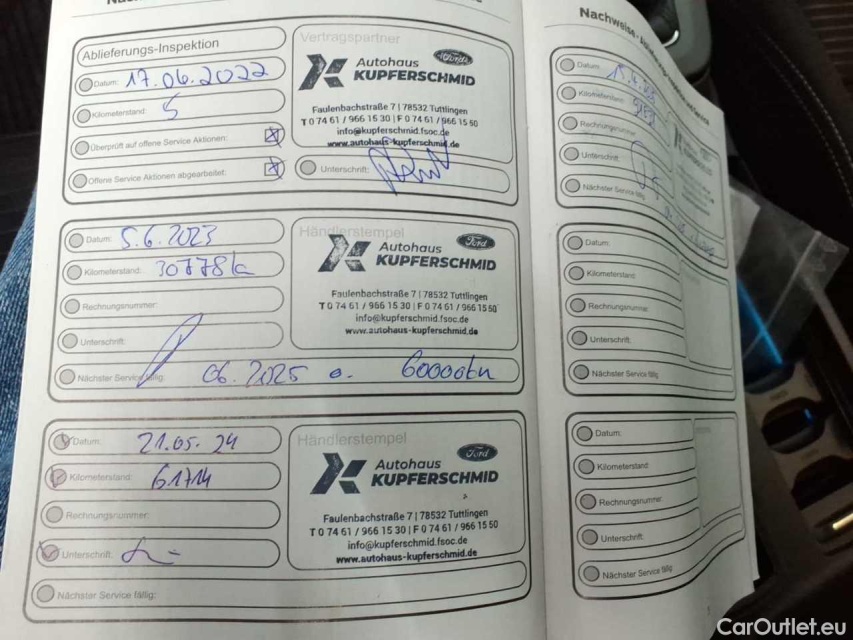 Ablieferungs-Inspektion
Datum: 17.06.2022
Kilometerstand: 5
Überprüft auf offene Service Aktionen: X
Offene Service Aktionen abgearbeitet: X
Vertragspartner
Ford
Autohaus
KUPFERSCHMID
Faulenbachstraße 7 | 78532 Tuttlingen
T 0 74 61 / 966 15 30 | F 0 74 61 / 966 15 50
info@kupferschmid.fsoc.de
www.autohaus-kupferschmid.de
Unterschrift:
Datum: 5.6.2023
Kilometerstand: 30778
Rechnungsnummer:
Unterschrift:
Nächster Service fällig: 06.2025 o. 60000
Händlerstempel
Ford
Autohaus
KUPFERSCHMID
Faulenbachstraße 7 | 78532 Tuttlingen
T 0 74 61 / 966 15 30 | F 0 74 61 / 966 15 50
info@kupferschmid.fsoc.de
www.autohaus-kupferschmid.de
Datum: 21.05.24
Kilometerstand: 61714
Rechnungsnummer:
Unterschrift:
Nächster Service fällig:
Händlerstempel
Ford
Autohaus
KUPFERSCHMID
Faulenbachstraße 7 | 78532 Tuttlingen
T 0 74 61 / 966 15 30 | F 0 74 61 / 966 15 50
info@kupferschmid.fsoc.de
www.autohaus-kupferschmid.de
Nachweise
Datum:
Kilometerstand:
Rechnungsnummer:
Unterschrift:
Nächster Service fällig
Datum:
Kilometerstand:
Rechnungsnummer:
Unterschrift:
Nächster Service fällig:
Datum:
Kilometerstand:
Rechnungsnummer:
Unterschrift:
Nächster Service fällig:
CarOutlet.eu